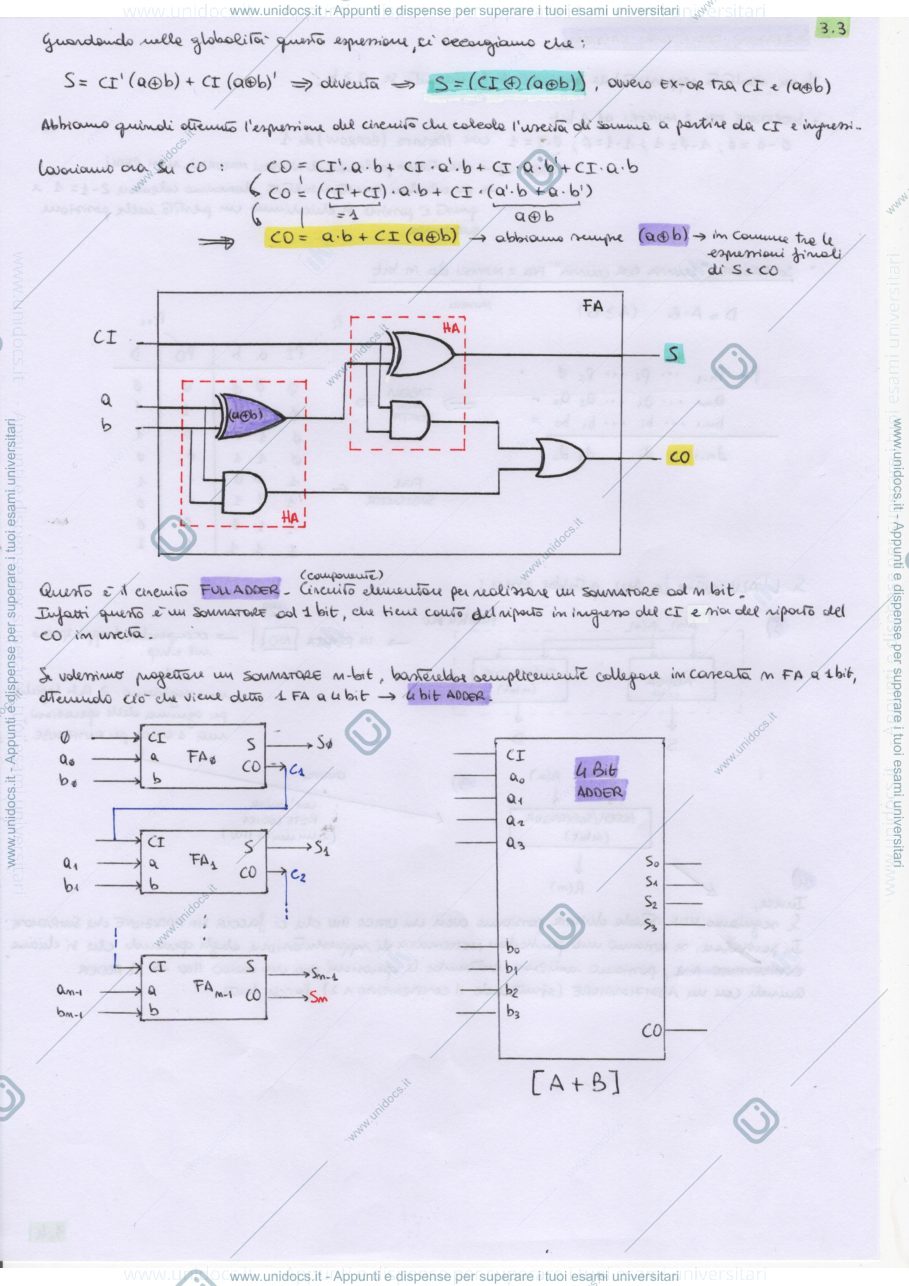 www.unidocs.it - Appunti e dispense per superare i tuoi esami universitari
3.3
Guardando nella globalità questa espressione, ci accorgiamo che:
S = CI' (a⊕b) + CI (a⊕b)' ⇒ diventa ⇒ S = (CI ⊕ (a⊕b)), ovvero EX-OR tra CI e (a⊕b)
Abbiamo quindi ottenuto l'espressione del circuito che calcola l'uscita di somma a partire da CI e ingressi.
Lavoriamo ora su CO : CO = CI'·a·b + CI·a'·b + CI·a·b' + CI·a·b
CO = (CI'+CI)·a·b + CI·(a'·b + a·b')
=1 a⊕b
⇒ CO = a·b + CI (a⊕b) → abbiamo sempre (a⊕b) → in comune tra le
espressioni finali
di S e CO
FA
HA
CI
S
a
(a⊕b)
b
CO
HA
(componente)
Questo è il circuito FULL ADDER - Circuito elementare per realizzare un SOMMATORE ad n bit.
Infatti questo è un SOMMATORE ad 1 bit, che tiene conto del riporto in ingresso del CI e sia del riporto del
CO in uscita.
Se volessimo progettare un SOMMATORE n-bit, basterebbe semplicemente collegare in cascata n FA a 1 bit,
ottenendo ciò che viene detto 1 FA a 4 bit → 4 bit ADDER.
0 CI S S0
a0 a FA0
b0 b CO C1
CI S S1
a1 a FA1
b1 b CO C2
CI S Sn-1
an-1 a FAn-1
bn-1 b CO Sn
CI
4 Bit
ADDER
a0
a1
a2
a3
S0
S1
S2
S3
b0
b1
b2
b3
CO
[A + B]
www.unidocs.it - Appunti e dispense per superare i tuoi esami universitari